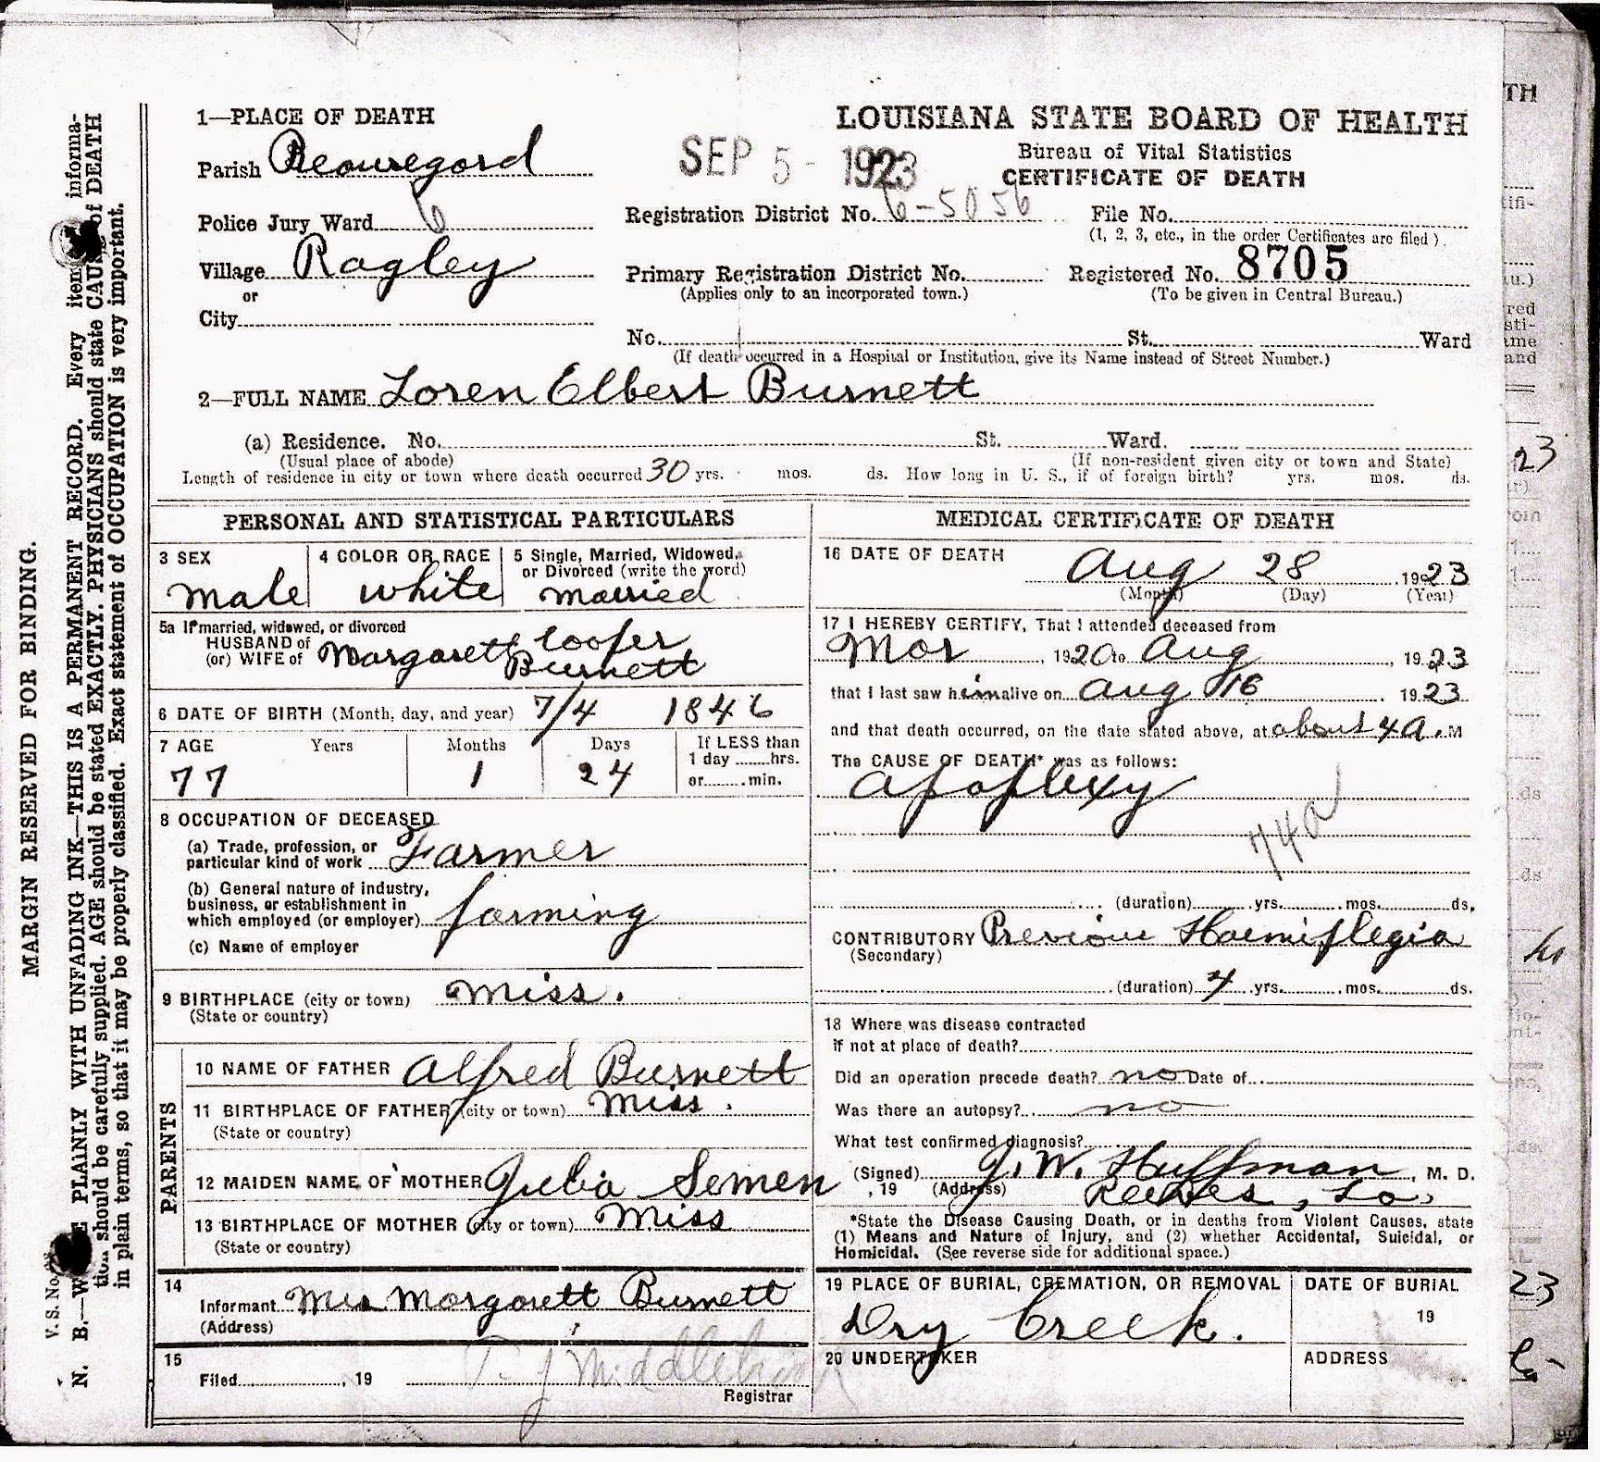 1—PLACE OF DEATH
Parish Beauregard
Police Jury Ward 6
Village Ragley
or
City
SEP 5 - 1923
LOUISIANA STATE BOARD OF HEALTH
Bureau of Vital Statistics
CERTIFICATE OF DEATH
Registration District No. 6-5056 File No.
(1, 2, 3, etc., in the order Certificates are filed)
Primary Registration District No. Registered No. 8705
(Applies only to an incorporated town.) (To be given in Central Bureau.)
No. St. Ward
(If death occurred in a Hospital or Institution, give its Name instead of Street Number.)
2—FULL NAME Loren Elbert Burnett
(a) Residence. No. St. Ward.
(Usual place of abode) (If non-resident given city or town and State)
Length of residence in city or town where death occurred 30 yrs. mos. ds. How long in U. S., if of foreign birth? yrs. mos. ds.
PERSONAL AND STATISTICAL PARTICULARS
3 SEX 4 COLOR OR RACE 5 Single, Married, Widowed,
or Divorced (write the word)
male white married
5a If married, widowed, or divorced
HUSBAND of
(or) WIFE of Margarett Cooper
Burnett
6 DATE OF BIRTH (Month, day, and year) 7/4 1846
7 AGE Years Months Days If LESS than
1 day hrs.
77 1 24 or min.
8 OCCUPATION OF DECEASED
(a) Trade, profession, or
particular kind of work Farmer
(b) General nature of industry,
business, or establishment in
which employed (or employer) farming
(c) Name of employer
9 BIRTHPLACE (city or town) Miss.
(State or country)
PARENTS
10 NAME OF FATHER Alfred Burnett
11 BIRTHPLACE OF FATHER (city or town) Miss.
(State or country)
12 MAIDEN NAME OF MOTHER Julia Semen
13 BIRTHPLACE OF MOTHER (city or town) Miss
(State or country)
14
Informant Mrs Margarett Burnett
(Address)
15
Filed , 19 T. J. Middleton
Registrar
MEDICAL CERTIFICATE OF DEATH
16 DATE OF DEATH Aug 28 1923
(Month) (Day) (Year)
17 I HEREBY CERTIFY, That I attended deceased from
Mar , 1920 to Aug , 1923
that I last saw him alive on Aug 16 1923
and that death occurred, on the date stated above, at about 4 A. M
The CAUSE OF DEATH* was as follows:
Apoplexy
74a
(duration) yrs. mos. ds.
CONTRIBUTORY Previous Haemiplegia
(Secondary)
(duration) 4 yrs. mos. ds.
18 Where was disease contracted
if not at place of death?
Did an operation precede death? no Date of
Was there an autopsy? no
What test confirmed diagnosis?
(Signed) J. W. Huffman, M. D.
, 19 (Address) Reeves, La.
*State the Disease Causing Death, or in deaths from Violent Causes, state
(1) Means and Nature of Injury, and (2) whether Accidental, Suicidal, or
Homicidal. (See reverse side for additional space.)
19 PLACE OF BURIAL, CREMATION, OR REMOVAL DATE OF BURIAL
Dry Creek. 19
20 UNDERTAKER ADDRESS
MARGIN RESERVED FOR BINDING.
V. S. No.
N. B.—WRITE PLAINLY WITH UNFADING INK—THIS IS A PERMANENT RECORD. Every item informa-
tion should be carefully supplied. AGE should be stated EXACTLY. PHYSICIANS should state CAUSE of DEATH
in plain terms, so that it may be properly classified. Exact statement of OCCUPATION is very important.